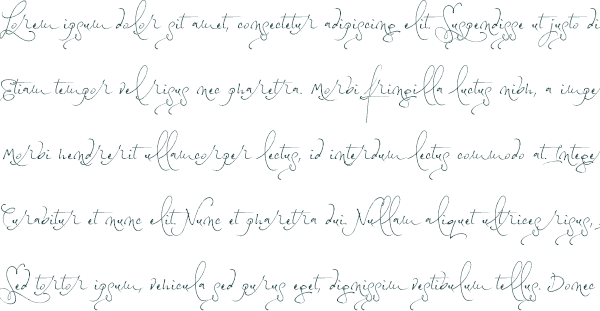 Lorem ipsum dolor sit amet, consectetur adipiscing elit. Suspendisse ut justo di
Etiam tempor vel risus nec pharetra. Morbi fringilla luctus nibh, a impe
Morbi hendrerit ullamcorper lectus, id interdum lectus commodo at. Intege
Curabitur et nunc elit. Nunc et pharetra dui. Nullam aliquet ultrices risus,
Sed tortor ipsum, vehicula sed purus eget, dignissim vestibulum tellus. Donec